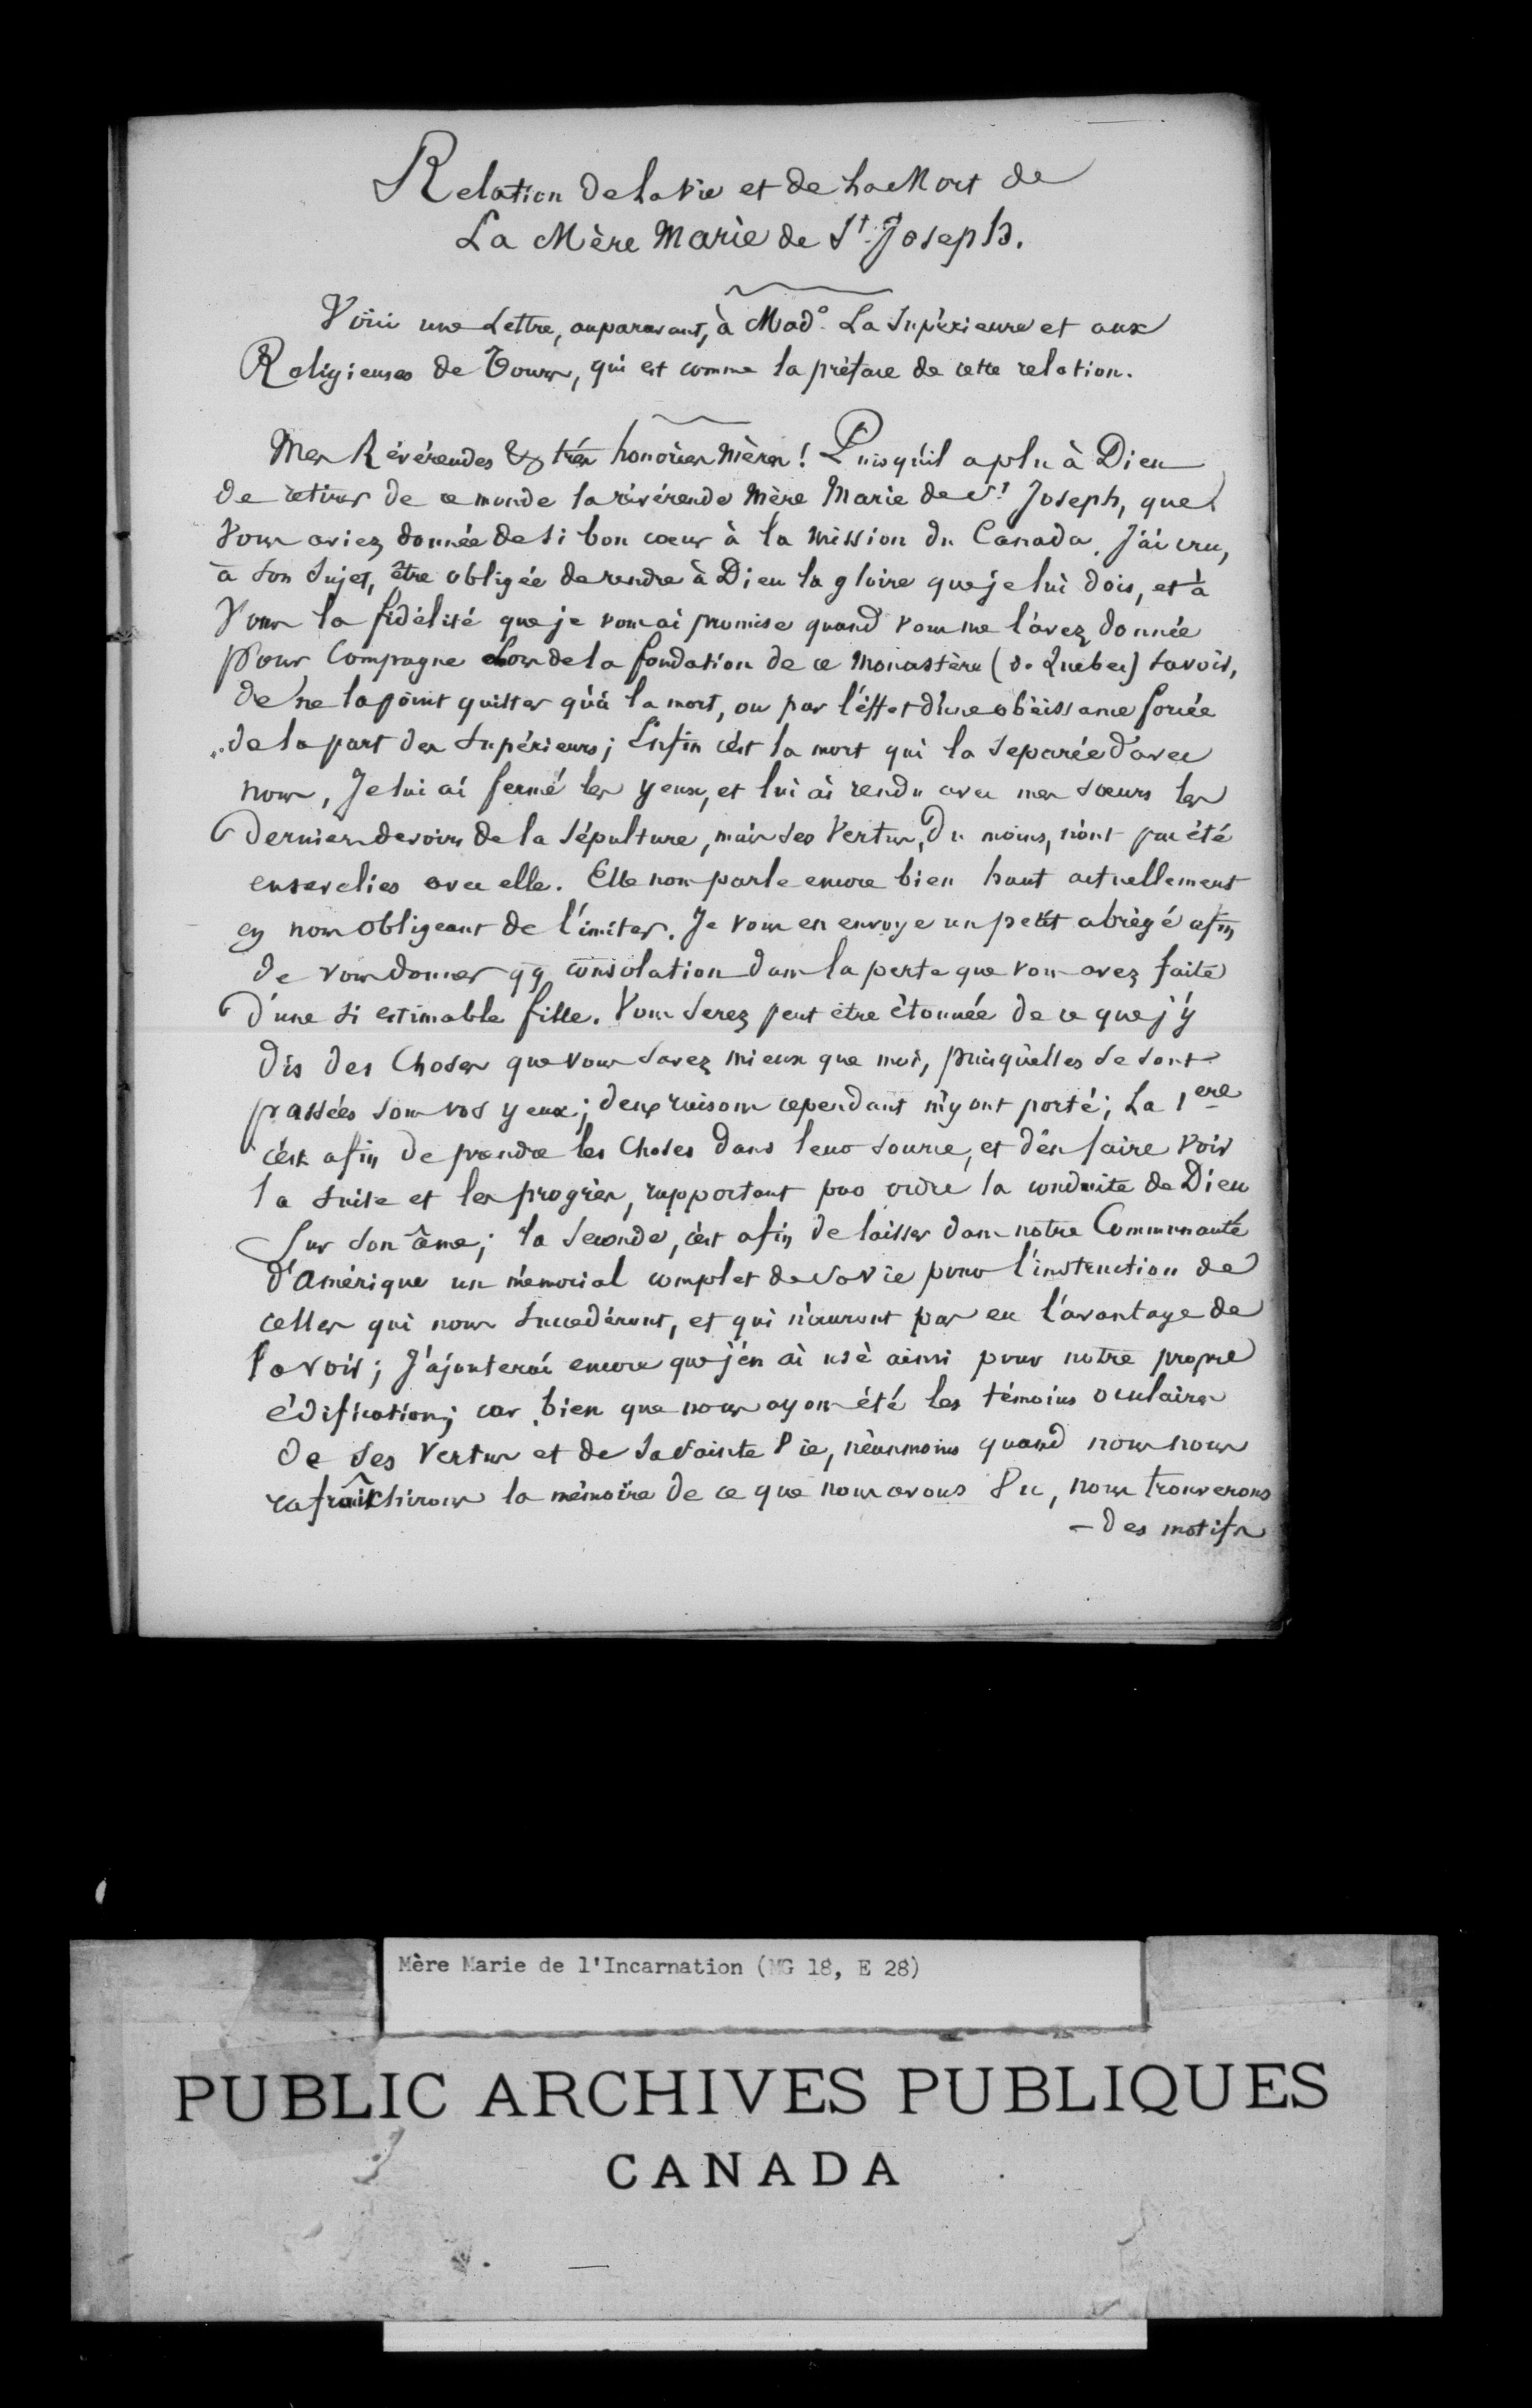 Relation de la vie et de la Mort de
La Mère Marie de St. Joseph.
Voici une Lettre, auparavant, à Made. La Supérieure et aux
Religieuses de Tours, qui est comme la préface de cette relation.
Mes Révérendes & très honorées Mères! Puisqu'il a plu à Dieu
de retirer de ce monde la révérende Mère Marie de St Joseph, que
vous aviez donnée de si bon coeur à la Mission du Canada, J'ai cru,
à son sujet, être obligée de rendre à Dieu la gloire que je lui dois, et à
Vous la fidélité que je vous ai promise quand vous me l'avez donnée
pour Compagne lors de la fondation de ce Monastère (de Quebec) savoir,
de ne la point quitter qu'à la mort, ou par l'effet d'une obéissance forcée
de la part des Supérieurs; Enfin c'est la mort qui la separée d'avec
nous, Je lui ai fermé les yeux, et lui ai rendu avec mes soeurs les
derniers devoirs de la Sépulture, mais ses Vertus, du moins, n'ont pas été
ensevelies avec elle. Elle nous parle encore bien haut actuellement
en nous obligeant de l'imiter. Je vous en envoye un petit abrégé afin
de vous donner qq consolation dans la perte que vous avez faite
d'une si estimable fille. Vous serez peut être étonnée de ce que j'y
dis des Choses que vous savez mieux que moi, puisqu'elles se sont
passées sous vos yeux; deux raisons cependant m'y ont porté; La 1ere
c'est afin de prendre les Choses dans leur source, et d'en faire voir
la suite et les progrès, rapportant par ordre la conduite de Dieu
Sur son âme; la seconde, c'est afin de laisser dans notre Communauté
d'Amérique un mémorial complet de sa vie pour l'instruction de
celles qui nous succedéront, et qui n'auront pas eu l'avantage de
la voir; J'ajouterai encore que j'en ai usé ainsi pour notre propre
édification; car bien que nous ayons été les témoins oculaires
de ses Vertus et de sa sainte Vie, néanmoins quand nous nous
rafraîchirons la mémoire de ce que nous avons Vu, nous trouverons
- des motifs
Mère Marie de l'Incarnation (MG 18, E 28)
PUBLIC ARCHIVES PUBLIQUES
CANADA